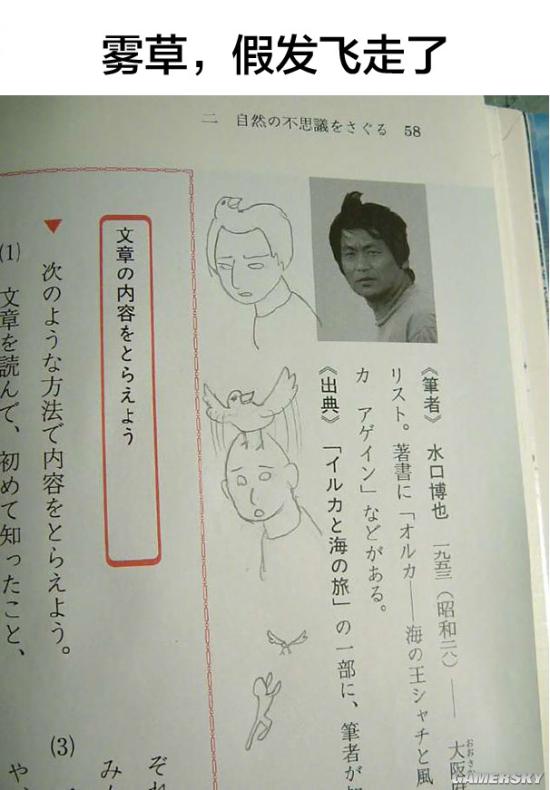 雾草，假发飞走了
二 自然の不思議をさぐる 58
《筆者》 水口博也 一九五三（昭和二八）—— 大阪
おおさか
リスト。著書に「オルカ——海の王シャチと風
カ アゲイン」などがある。
《出典》 「イルカと海の旅」の一部に、筆者が
文章の内容をとらえよう
▼ 次のような方法で内容をとらえよう。
(1) 文章を読んで、初めて知ったこと、
ぞれ
み
(3) や、
GAMERSKY